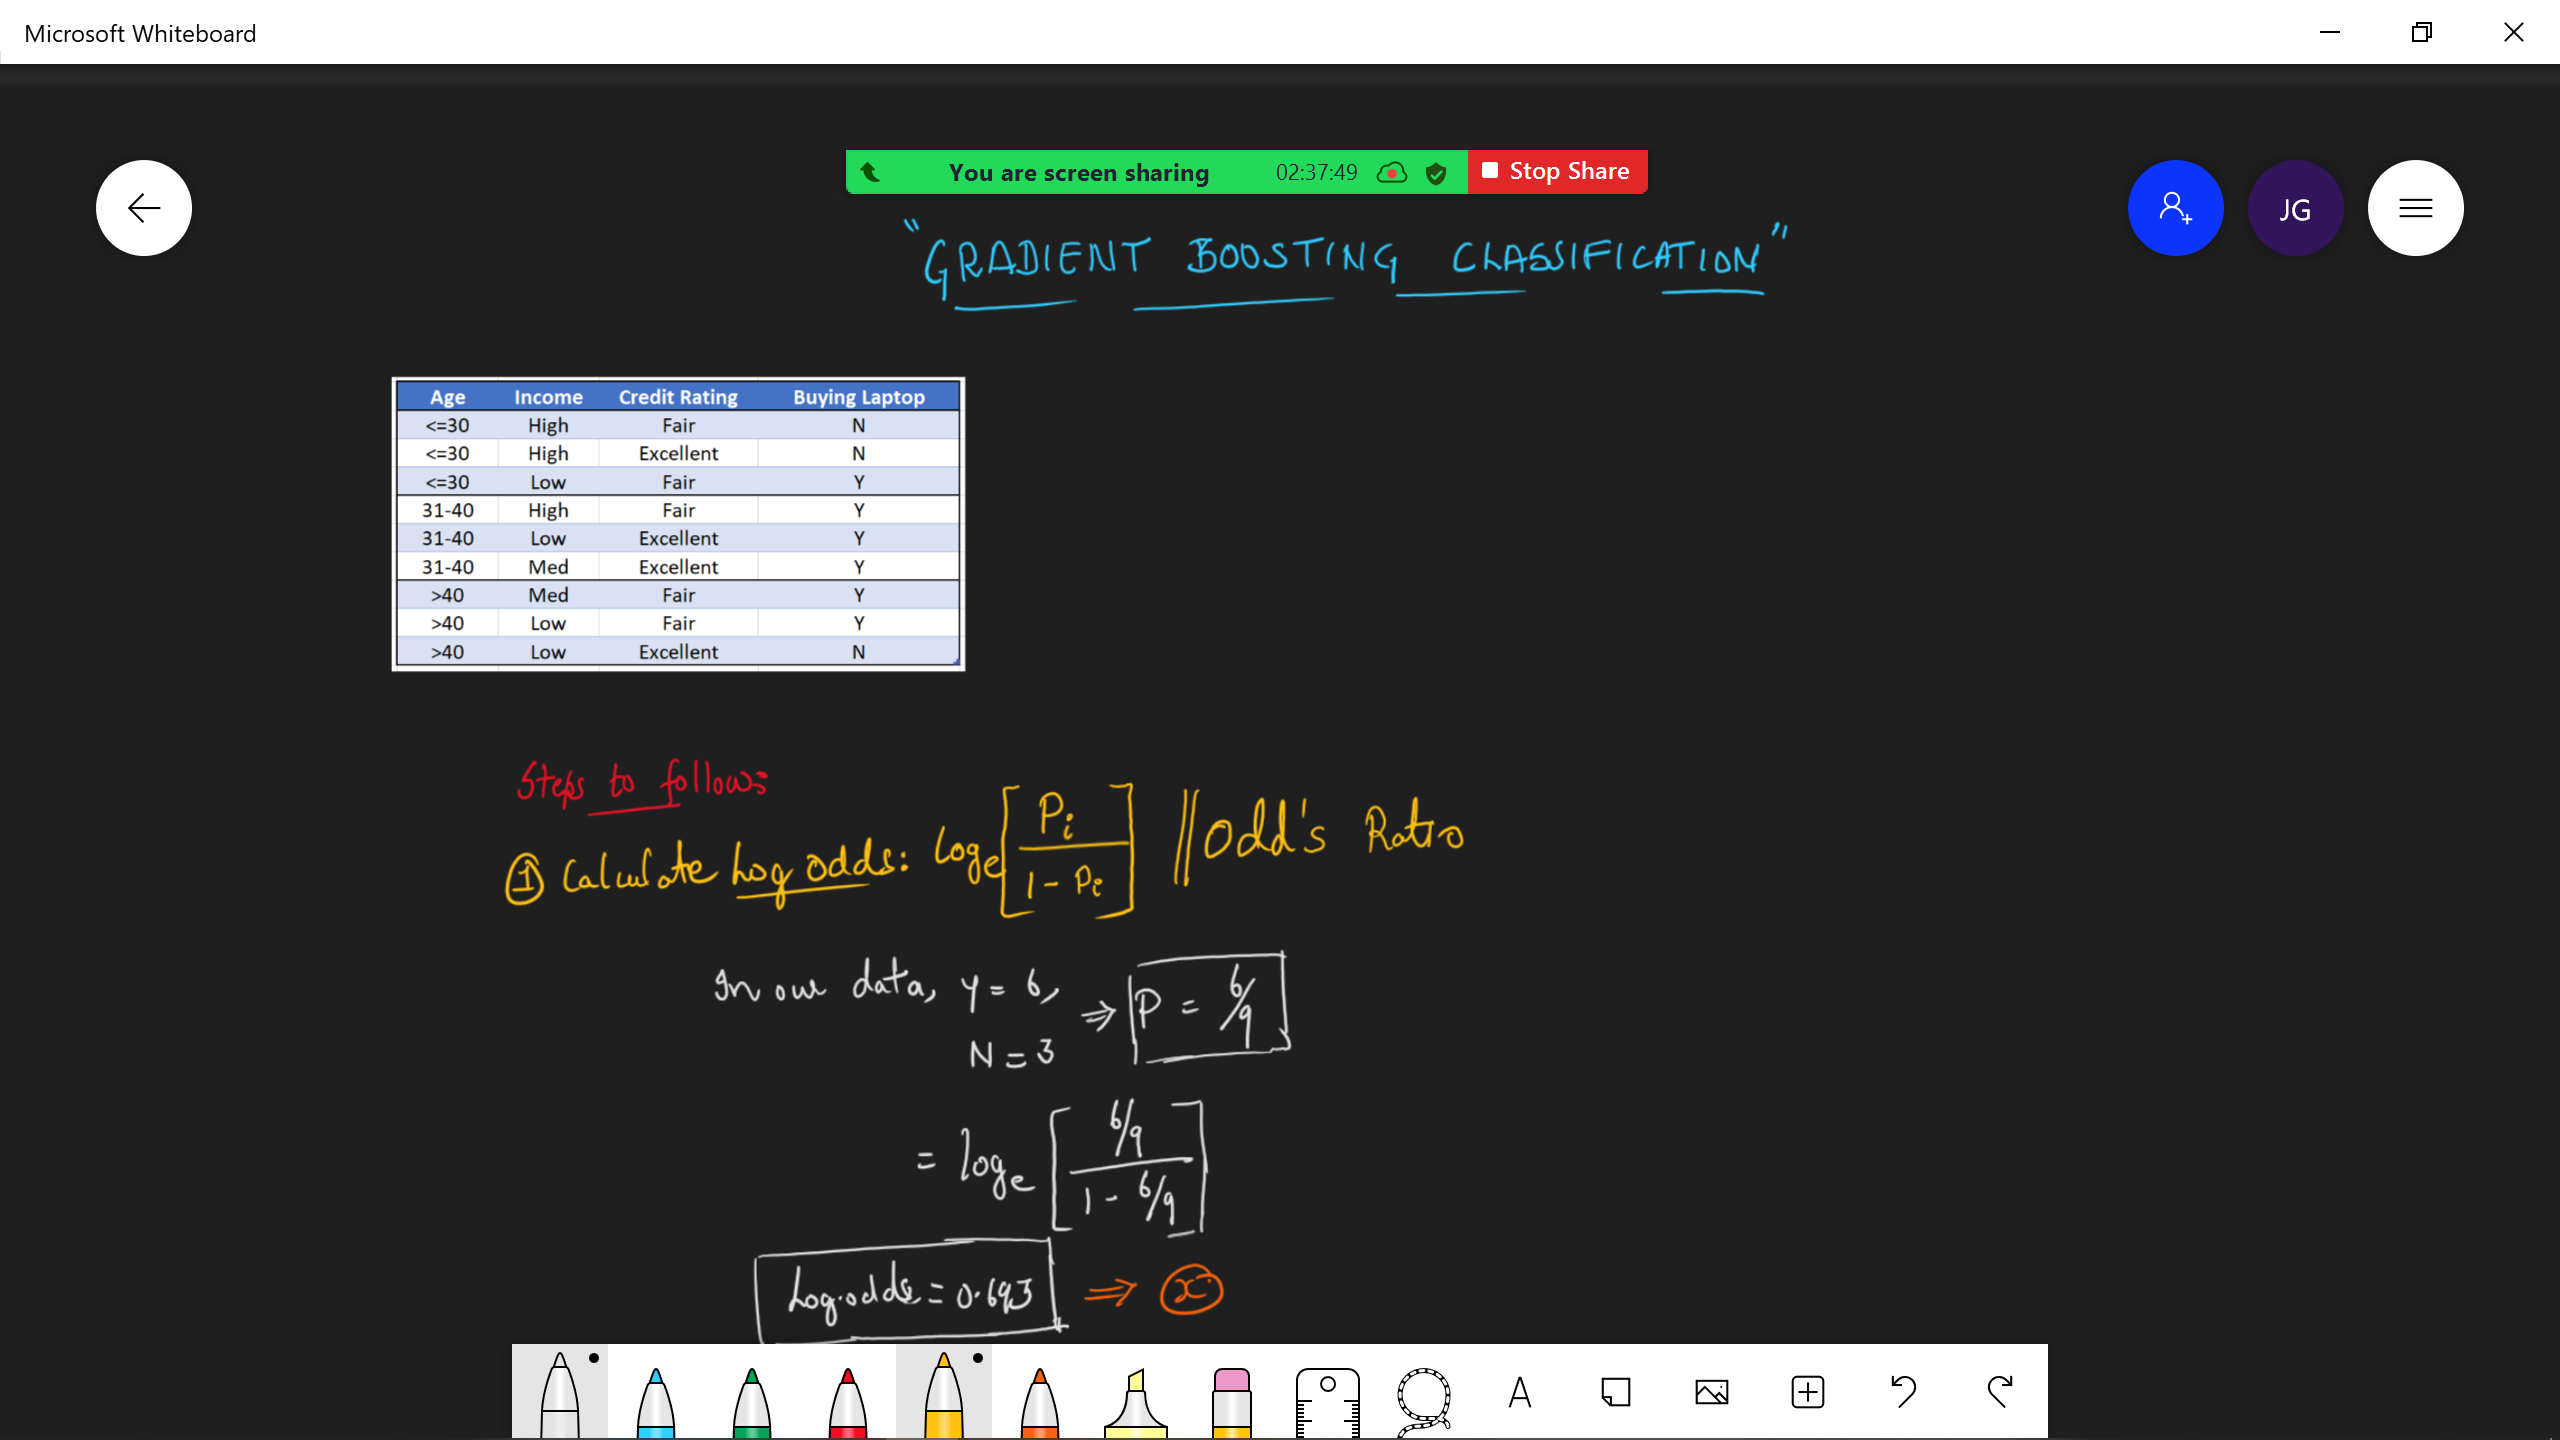 Microsoft Whiteboard
You are screen sharing 02:37:49 Stop Share
JG
"GRADIENT BOOSTING CLASSIFICATION"
Age Income Credit Rating Buying Laptop
<=30 High Fair N
<=30 High Excellent N
<=30 Low Fair Y
31-40 High Fair Y
31-40 Low Excellent Y
31-40 Med Excellent Y
>40 Med Fair Y
>40 Low Fair Y
>40 Low Excellent N
Steps to follow:
① Calculate Log odds: loge[Pi / 1 - Pi] || Odd's Ratio
In our data, Y = 6,
N = 3
⇒ P = 6/9
= loge [6/9 / 1 - 6/9]
Log.odds = 0.693 ⇒ x
A